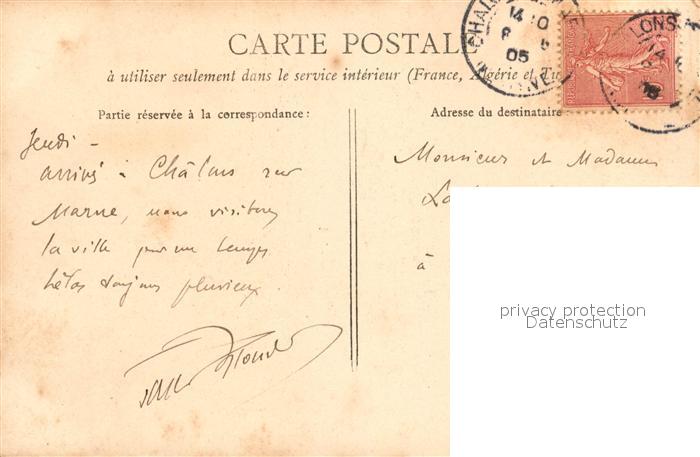 CARTE POSTALE
à utiliser seulement dans le service intérieur (France, Algérie et Tu
Partie réservée à la correspondance :
Adresse du destinataire
Jeudi -
arrivés à Châlons sur
Marne, nous visitons
la ville par un temps
hélas toujours pluvieux.
Monsieur et Madame
à
CHAL
14 10
05
LONS
privacy protection
Datenschutz